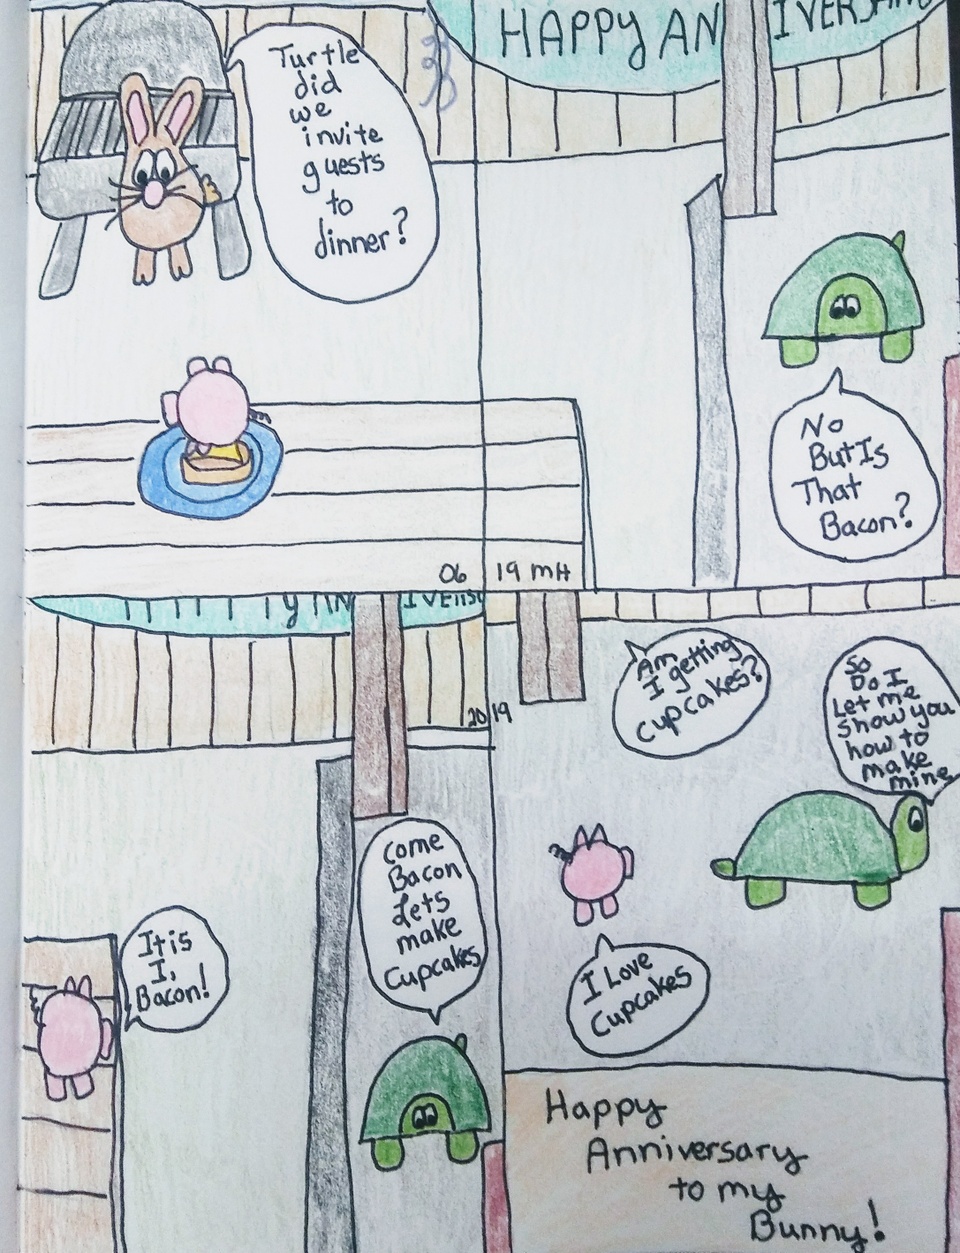 HAPPY AN IVERSARY
Turtle
did
we
invite
guests
to
dinner?
No
But Is
That
Bacon?
06 19 mH
Y AN IVERS
2019
It is
I,
Bacon!
come
Bacon
Lets
make
Cupcakes
Am
I getting
cupcakes?
So
Do I
Let me
show you
how to
make
mine
I Love
Cupcakes
Happy
Anniversary
to my
Bunny!